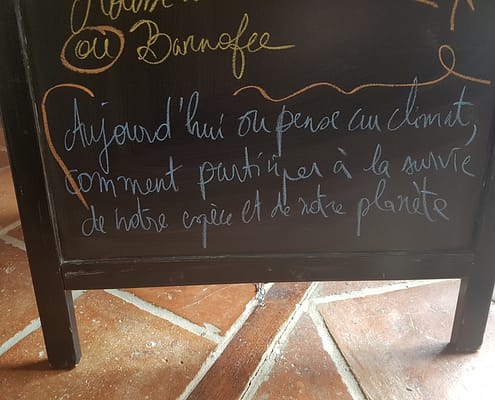 Mousse
ou Bannofee
Aujourd'hui on pense au climat,
comment participer à la survie
de notre espèce et de notre planète